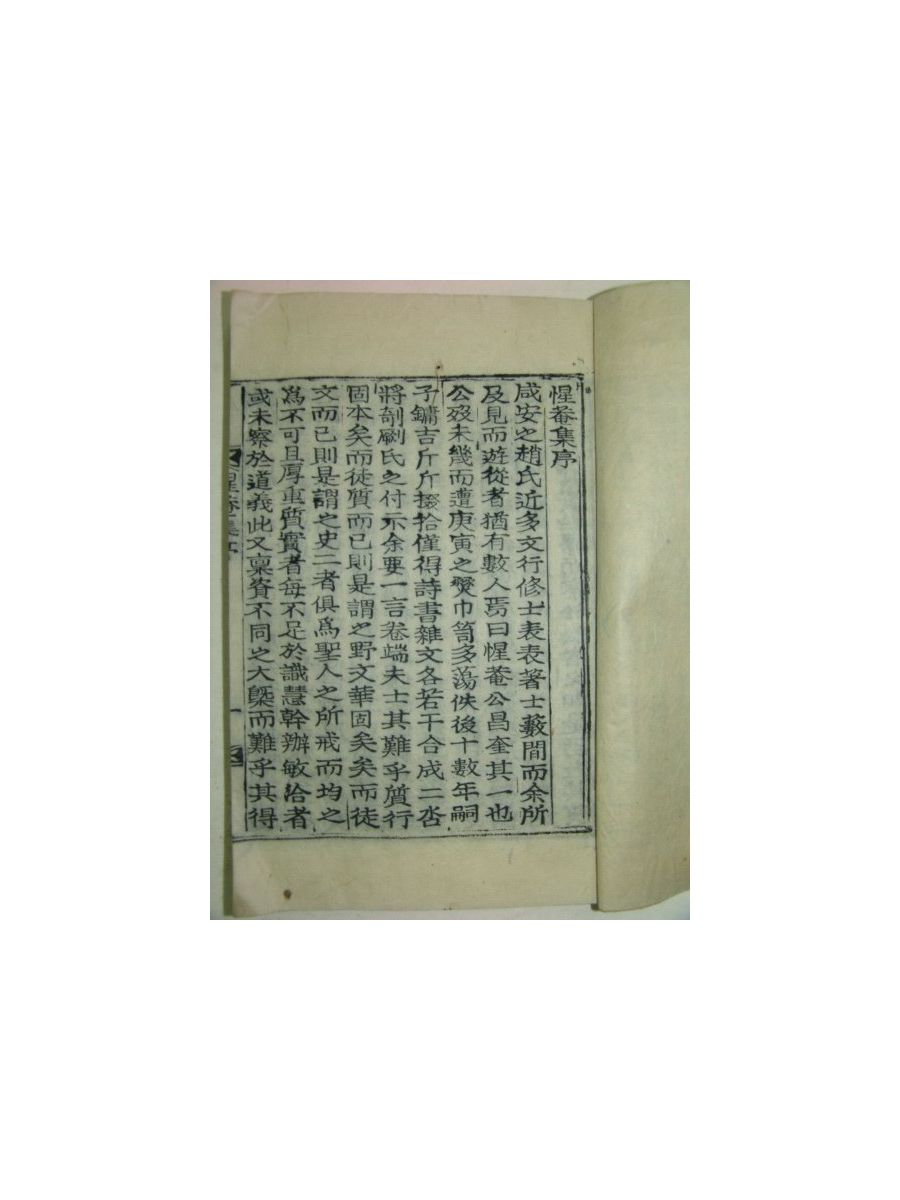 惺菴集序
咸安之趙氏近多文行修士表表著士藪間而余所
及見而遊從者猶有數人焉曰惺菴公昌奎其一也
公歿未幾而遭庚寅之燹巾笥多蕩佚後十數年嗣
子鏞吉斤斤掇拾僅得詩書雜文各若干合成二呇
將剞劂氏之付示余要一言卷端夫士其難乎質行
固本矣而徒質而已則是謂之野文華固矣矣而徒
文而已則是謂之史二者俱爲聖人之所戒而均之
爲不可且厚重質實者每不足於識慧幹辦敏洽者
或未察於道義此又稟資不同之大槩而難乎其得
惺菴集序
一